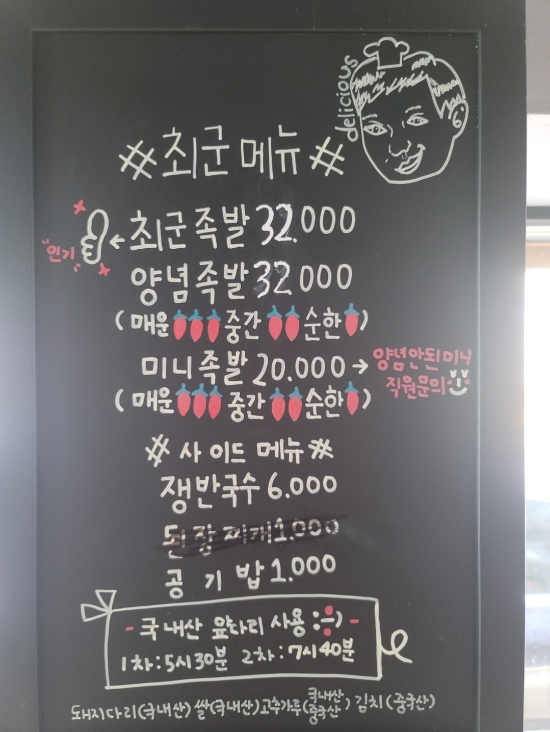 delicious
#최군메뉴#
"인기" ←최군족발 32.000
양념족발 32.000
(매운 중간 순한)
미니족발 20.000→ 양념안된미니
직원문의
(매운 중간 순한)
#사이드 메뉴#
쟁반국수 6.000
된장찌개 1.000
공기밥 1.000
-국내산 앞다리 사용:-)-
1차:5시30분 2차:7시40분
돼지다리(국내산) 쌀(국내산) 고추가루(국내산 중국산) 김치(중국산)